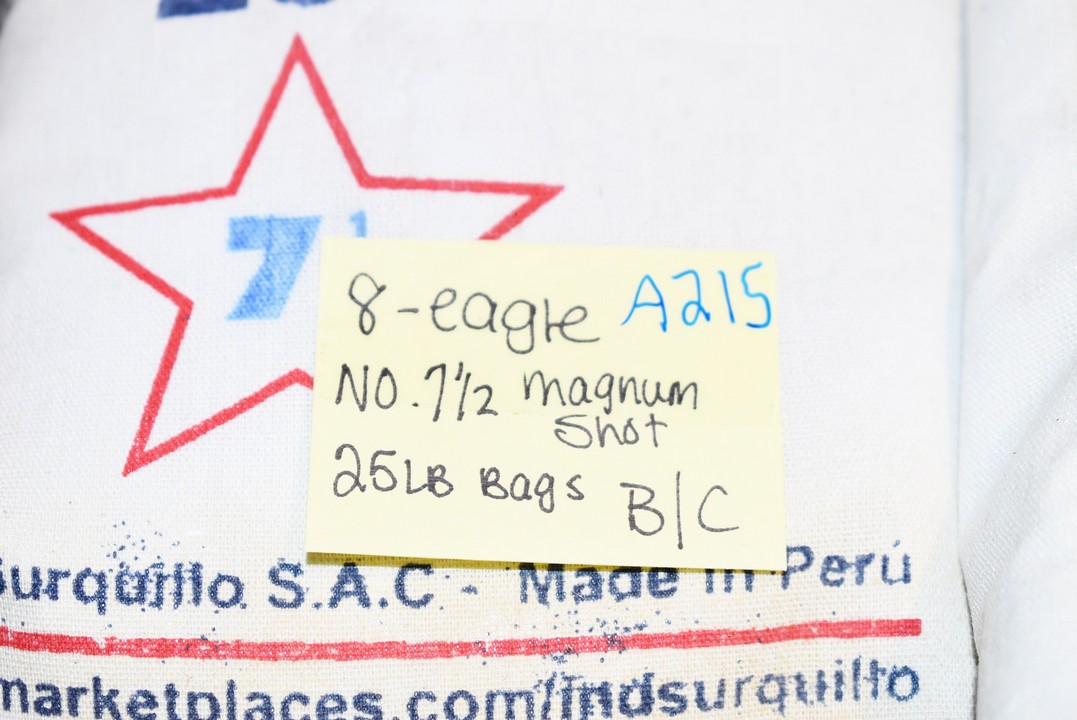 7 1
8-eagle A215
NO. 7 1/2 magnum
Shot
25LB Bags B/C
surquillo S.A.C - Made in Perú
marketplaces.com/indsurquillo